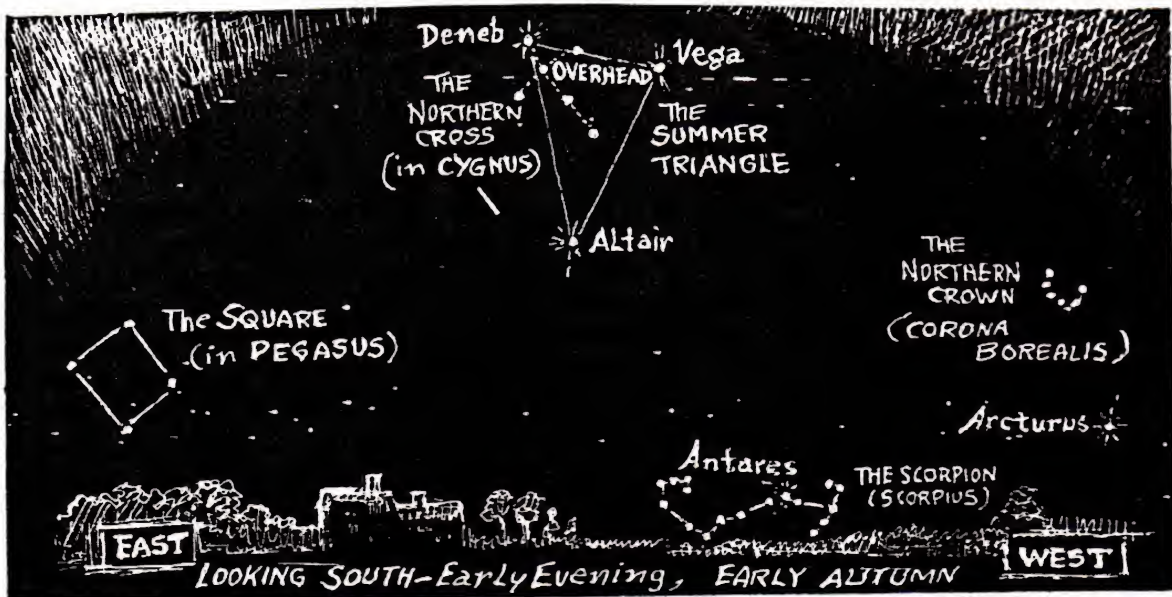 Deneb
Vega
OVERHEAD
THE
NORTHERN
CROSS
(in CYGNUS)
THE
SUMMER
TRIANGLE
ALtair
THE
NORTHERN
CROWN
(CORONA
BOREALIS)
The SQUARE
(in PEGASUS)
Arcturus
Antares
THE SCORPION
(SCORPIUS)
EAST
WEST
LOOKING SOUTH-Early Evening, EARLY AUTUMN